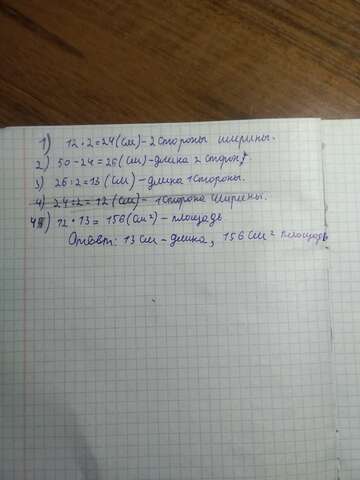 1) 12 · 2 = 24 (см) - 2 стороны ширины.
2) 50 - 24 = 26 (см) - длина 2 сторон.
3) 26 : 2 = 13 (см) - длина 1 стороны.
4) 24 : 2 = 12 (см) - 1 сторона ширины.
4) 12 · 13 = 156 (см²) - площадь
Ответ: 13 см - длина, 156 см² площадь